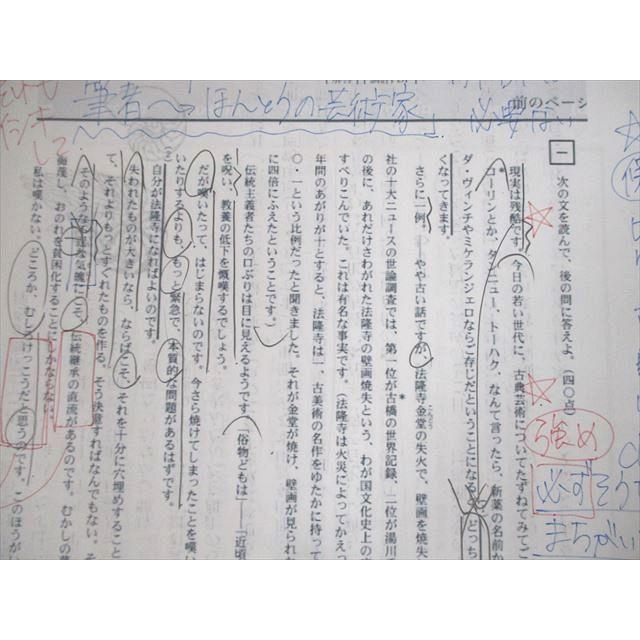 前のページ
筆者へ→ほんとうの芸術家
必要ない
一 次の文を読んで、後の問に答えよ。(四〇点)
現実は残酷です。今日の若い世代に、古典芸術についてたずねてみてご
コーリンとか、タンニュー、トーハク、なんて言ったら、新薬の名前か
ダ・ヴィンチやミケランジェロならご存じだということになると、どっち
くなってきます。
さらに一例。――やや古い話ですが、法隆寺金堂の失火で、壁画を焼失
こんどう
社の十大ニュースの世論調査では、第一位が古橋の世界記録、二位が湯川の
の後に、あれだけさわがれた法隆寺の壁画焼失という、わが国文化史上の
すべりこんでいた。これは有名な事実です。(法隆寺は火災によってかえっ
年間のあがりが十とすると、法隆寺は一、古美術の名作をゆたかに持って
〇・一という比例だったと聞きました。それが金堂が焼け、壁画が見られな
に四倍にふえたということです。)
伝統主義者たちの口ぶりは目に見えるようです。「俗物どもは――」「近頃
を呪い、教養の低下を慨嘆するでしょう。
だが嘆いたって、はじまらないのです。今さら焼けてしまったことを嘆い
いたりするよりも、もっと緊急で、本質的な問題があるはずです。
(2)自分が法隆寺になればよいのです。
失われたものが大きいなら、ならばこそ、それを十分に穴埋めすること
て、それよりもっとすぐれたものを作る。そう決意すればなんでもない。そ
そのような気魄にこそ、伝統継承の直流があるのです。むかしの
侮蔑し、おのれを貧困化することにしかならない。
私は嘆かない。どころか、むしろけっこうだと思うのです。このほうが
強め
必ず
まちがい